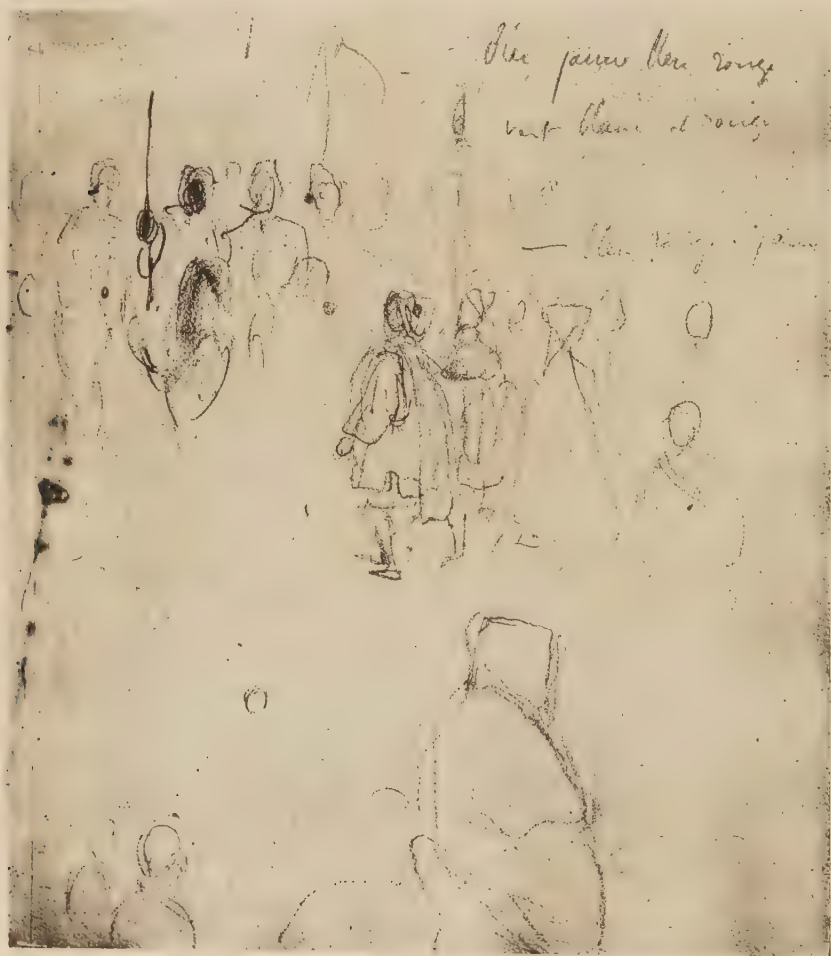 jaune bleu rouge
vert blanc et rouge
— bleu rouge jaune